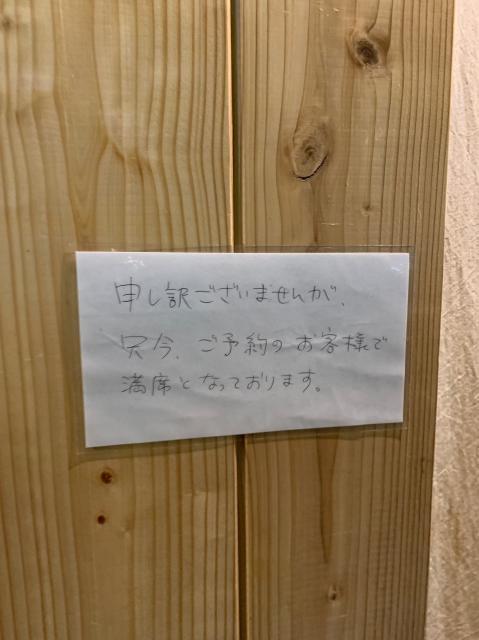 申し訳ございませんが、
只今、ご予約のお客様で
満席となっております。